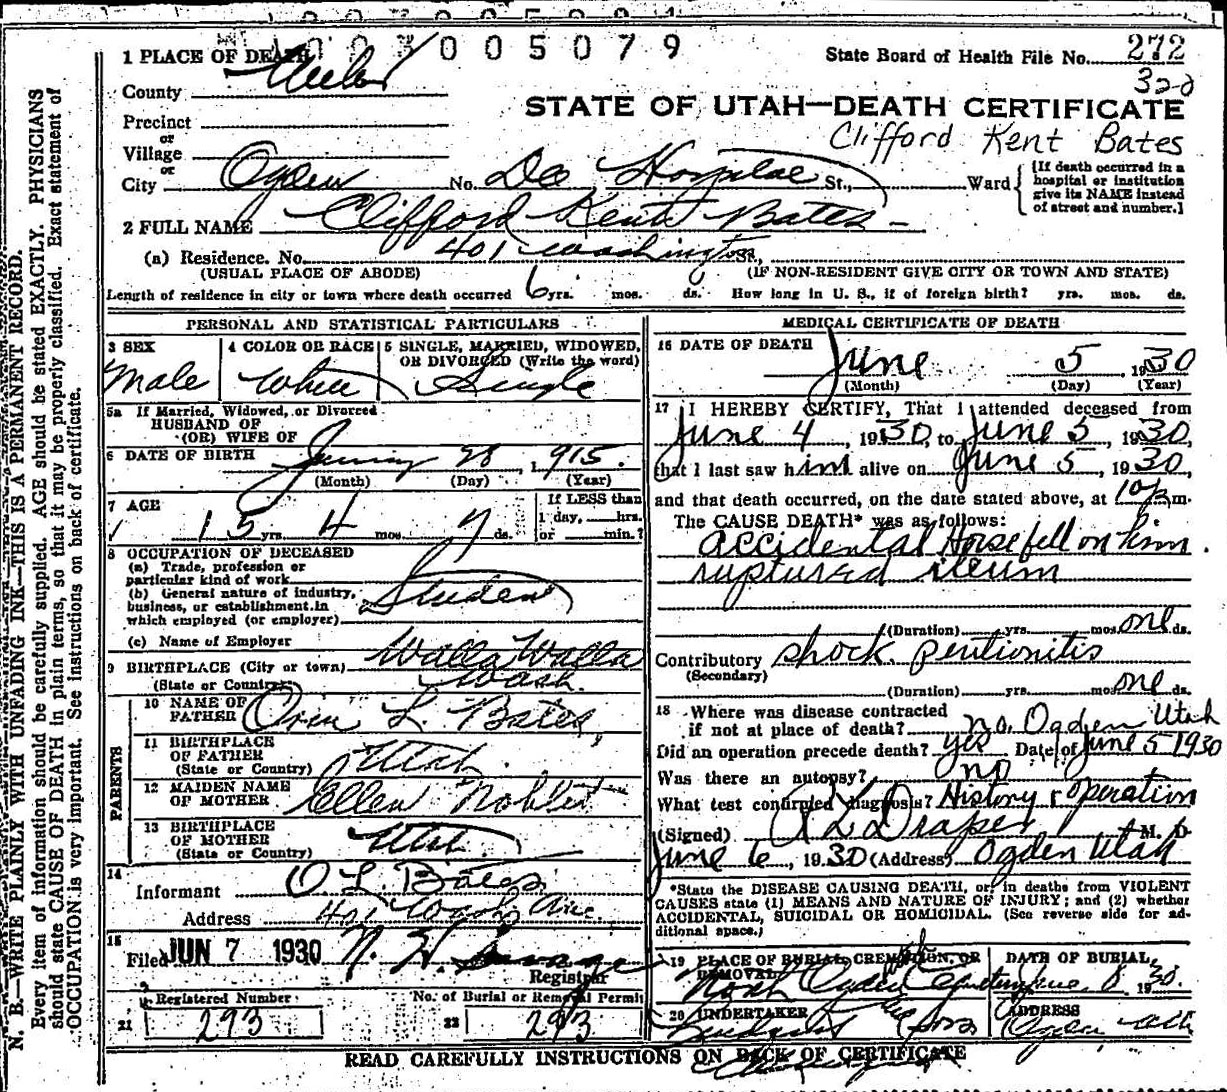 003005079
1 PLACE OF DEATH
State Board of Health File No. 272
322
County Weber
STATE OF UTAH—DEATH CERTIFICATE
Precinct
or
Clifford Kent Bates
Village
or
City Ogden No. Dee Hospital St., Ward
{If death occurred in a hospital or institution give its NAME instead of street and number.}
2 FULL NAME Clifford Kent Bates
(a) Residence. No. 401 Washington
(USUAL PLACE OF ABODE) (IF NON-RESIDENT GIVE CITY OR TOWN AND STATE)
Length of residence in city or town where death occurred 6 yrs. mos. ds. How long in U. S., if of foreign birth? yrs. mos. ds.
PERSONAL AND STATISTICAL PARTICULARS
3 SEX 4 COLOR OR RACE 5 SINGLE, MARRIED, WIDOWED,
OR DIVORCED (Write the word)
Male White Single
5a If Married, Widowed, or Divorced
HUSBAND OF
(OR) WIFE OF
6 DATE OF BIRTH January 28, 1915.
(Month) (Day) (Year)
7 AGE If LESS than
15 yrs. 4 mos. 7 ds. 1 day, hrs.
or min.?
8 OCCUPATION OF DECEASED
(a) Trade, profession or
particular kind of work
(b) General nature of industry, Student
business, or establishment in
which employed (or employer)
(c) Name of Employer
9 BIRTHPLACE (City or town) Walla Walla
(State or Country) Wash.
PARENTS
10 NAME OF
FATHER Orin L. Bates
11 BIRTHPLACE
OF FATHER Utah
(State or Country)
12 MAIDEN NAME
OF MOTHER Ellen
13 BIRTHPLACE
OF MOTHER Utah.
(State or Country)
14
Informant O. L. Bates
Address 401 Wash Ave.
15
Filed JUN 7 1930 N. H. Savage
Registrar
Registered Number No. of Burial or Removal Permit
21 293 22 293
MEDICAL CERTIFICATE OF DEATH
16 DATE OF DEATH June 5 1930
(Month) (Day) (Year)
17 I HEREBY CERTIFY, That I attended deceased from
June 4, 1930, to June 5, 1930,
that I last saw him alive on June 5, 1930,
and that death occurred, on the date stated above, at 10 m.
The CAUSE DEATH* was as follows:
accidental Horse fell on him.
ruptured ileum
(Duration) yrs. mos. one ds.
Contributory shock. peritionitis
(Secondary)
(Duration) yrs. mos. one ds.
18 Where was disease contracted
if not at place of death? no. Ogden Utah
Did an operation precede death? yes Date of June 5 1930
Was there an autopsy? no
What test confirmed diagnosis? History & operation
(Signed) Draper M. D.
June 6, 1930 (Address) Ogden Utah
*State the DISEASE CAUSING DEATH, or, in deaths from VIOLENT
CAUSES state (1) MEANS AND NATURE OF INJURY; and (2) whether
ACCIDENTAL, SUICIDAL OR HOMICIDAL. (See reverse side for ad-
ditional space.)
19 PLACE OF BURIAL, CREMATION, OR DATE OF BURIAL,
REMOVAL
North Ogden Cemetery June 8 1930.
20 UNDERTAKER ADDRESS
& Sons Ogden Utah
READ CAREFULLY INSTRUCTIONS ON BACK OF CERTIFICATE
N. B.—WRITE PLAINLY WITH UNFADING INK—THIS IS A PERMANENT RECORD.
Every item of information should be carefully supplied. AGE should be stated EXACTLY. PHYSICIANS
should state CAUSE OF DEATH in plain terms, so that it may be properly classified. Exact statement of
OCCUPATION is very important. See instructions on back of certificate.